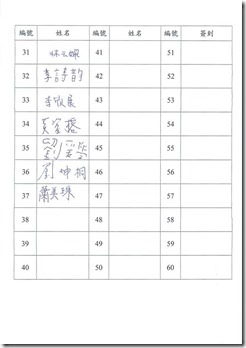 編號 姓名 編號 姓名 編號 簽到
31 41 51
32 李詩韵 42 52
33 李欣展 43 53
34 44 54
35 45 55
36 劉坤桐 46 56
37 蕭美珠 47 57
38 48 58
39 49 59
40 50 60